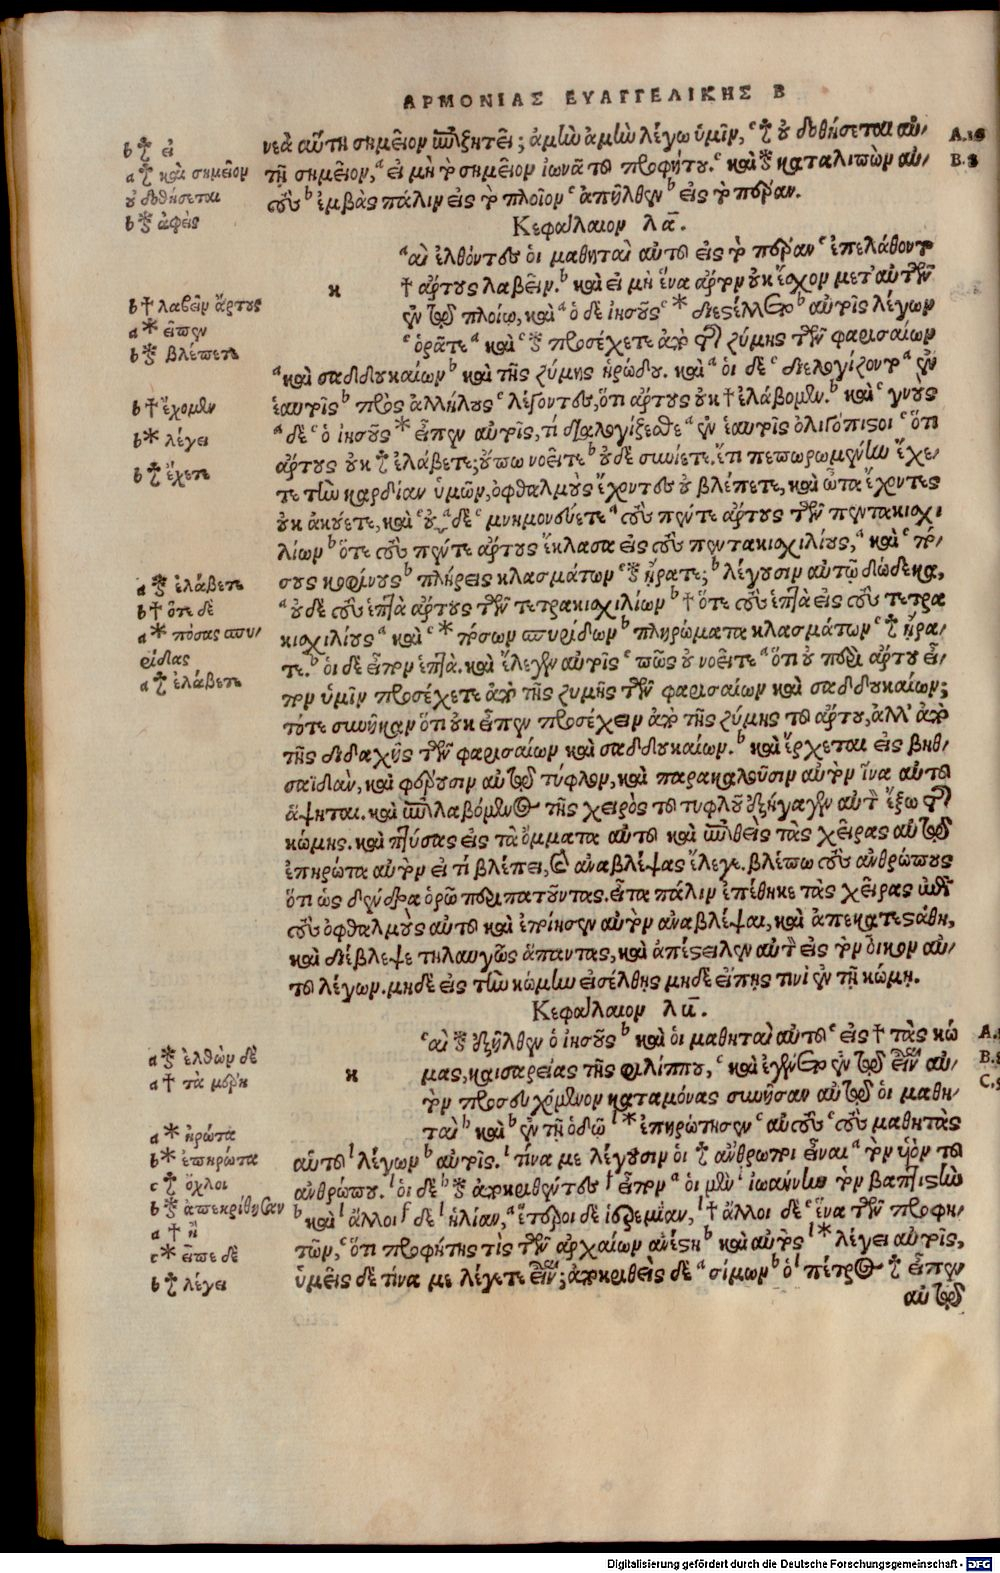 ΑΡΜΟΝΙΑΣ ΕΥΑΓΓΕΛΙΚΗΣ Β
νεὰ αὕτη σημεῖον ἐπιζητεῖ; ἀμὴν ἀμὴν λέγω ὑμῖν, ᶜ † οὐ δοθήσεται αὐ-
τῇ σημεῖον, ᵃ εἰ μὴ τὸ σημεῖον ἰωνᾶ τοῦ προφήτου. ᶜ καὶ * καταλιπὼν αὐ-
τοὺς ᵇ ἐμβὰς πάλιν εἰς τὸ πλοῖον ᶜ ἀπῆλθεν ᵇ εἰς τὸ πέραν.
Κεφάλαιον λα.
ᵃ καὶ ἐλθόντες οἱ μαθηταὶ αὐτοῦ εἰς τὸ πέραν ᶜ ἐπελάθοντο
† ἄρτους λαβεῖν. ᵇ καὶ εἰ μὴ ἕνα ἄρτον οὐκ ἔσχον μετ' αὐτῶν
ἐν τῷ πλοίῳ, καὶ ᵃ ὁ δὲ ἰησοῦς ᶜ * διεστέλλετο ᵇ αὐτοῖς λέγων
ᶜ ὁρᾶτε ᵃ καὶ ᶜ * προσέχετε ἀπὸ τῆς ζύμης τῶν φαρισαίων
ᵃ καὶ σαδδουκαίων ᵇ καὶ τῆς ζύμης ἡρώδου. καὶ ᵃ οἱ δὲ ᶜ διελογίζοντο ᵃ ἐν
ἑαυτοῖς ᵇ πρὸς ἀλλήλους ᶜ λέγοντες, ὅτι ἄρτους οὐκ † ἐλάβομεν. ᵇ καὶ ᶜ γνοὺς
ᵃ δὲ ᶜ ὁ ἰησοῦς * εἶπεν αὐτοῖς, τί διαλογίζεσθε ᵃ ἐν ἑαυτοῖς ὀλιγόπιστοι ᶜ ὅτι
ἄρτους οὐκ † ἐλάβετε; οὔπω νοεῖτε ᵇ οὐδὲ συνίετε. ἔτι πεπωρωμένην ἔχε-
τε τὴν καρδίαν ὑμῶν, ὀφθαλμοὺς ἔχοντες οὐ βλέπετε, καὶ ὦτα ἔχοντες
οὐκ ἀκούετε, καὶ ᶜ οὐ ᵃ δὲ ᶜ μνημονεύετε ᵃ τοὺς πέντε ἄρτους τῶν πεντακισχι
λίων ᵇ ὅτε τοὺς πέντε ἄρτους ἔκλασα εἰς τοὺς πεντακισχιλίους, ᵃ καὶ ᶜ πό-
σους κοφίνους ᵇ πλήρεις κλασμάτων ᶜ * ἤρατε; ᵇ λέγουσιν αὐτῷ δώδεκα,
ᵃ οὐδὲ τοὺς ἑπτὰ ἄρτους τῶν τετρακισχιλίων ᵇ † ὅτε τοὺς ἑπτὰ εἰς τοὺς τετρα
κισχιλίους ᵃ καὶ ᶜ * πόσων σπυρίδων ᵇ πληρώματα κλασμάτων ᶜ † ἤρα-
τε. ᵇ οἱ δὲ εἶπον ἑπτὰ. καὶ ἔλεγεν αὐτοῖς ᶜ πῶς οὐ νοεῖτε ᵃ ὅτι οὐ περὶ ἄρτου εἶ-
πον ὑμῖν προσέχετε ἀπὸ τῆς ζυμῆς τῶν φαρισαίων καὶ σαδδουκαίων;
τότε συνῆκαν ὅτι οὐκ εἶπεν προσέχειν ἀπὸ τῆς ζύμης τοῦ ἄρτου, ἀλλ' ἀπὸ
τῆς διδαχῆς τῶν φαρισαίων καὶ σαδδουκαίων. ᵇ καὶ ἔρχεται εἰς βηθ-
σαϊδὰν, καὶ φέρουσιν αὐτῷ τύφλον, καὶ παρακαλοῦσιν αὐτὸν ἵνα αὐτοῦ
ἅψηται. καὶ ἐπιλαβόμενος τῆς χειρὸς τοῦ τυφλοῦ ἐξήγαγεν αὐτὸν ἔξω τῆς
κώμης. καὶ πτύσας εἰς τὰ ὄμματα αὐτοῦ καὶ ἐπιθεὶς τὰς χεῖρας αὐτῷ
ἐπηρώτα αὐτὸν εἰ τί βλέπει, καὶ ἀναβλέψας ἔλεγε. βλέπω τοὺς ἀνθρώπους
ὅτι ὡς δένδρα ὁρῶ περιπατοῦντας. εἶτα πάλιν ἐπέθηκε τὰς χεῖρας ἐπὶ
τοὺς ὀφθαλμοὺς αὐτοῦ καὶ ἐποίησεν αὐτὸν ἀναβλέψαι, καὶ ἀπεκατεστάθη,
καὶ διέβλεψε τηλαυγῶς ἅπαντας, καὶ ἀπέστειλεν αὐτὸν εἰς τὸν οἶκον αὐ-
τοῦ λέγων. μηδὲ εἰς τὴν κώμην εἰσέλθῃς μηδὲ εἴπῃς τινὶ ἐν τῇ κώμῃ.
Κεφάλαιον λβ.
ᶜ καὶ * ἐξῆλθεν ὁ ἰησοῦς ᵇ καὶ οἱ μαθηταὶ αὐτοῦ ᶜ εἰς † τὰς κώ
μας, καισαρείας τῆς φιλίππου, ᶜ καὶ ἐγένετο ἐν τῷ εἶναι αὐ-
τὸν προσευχόμενον καταμόνας συνῆσαν αὐτῷ οἱ μαθη-
ταὶ ᵇ καὶ ᵇ ἐν τῇ ὁδῷ ˡ * ἐπηρώτησεν ᶜ αὐτοὺς ᶜ τοὺς μαθητὰς
αὐτοῦ ˡ λέγων ᵇ αὐτοῖς. ˡ τίνα με λέγουσιν οἱ † ἄνθρωποι εἶναι ᵃ τὸν υἱὸν τοῦ
ἀνθρώπου. ˡ οἱ δὲ ᵇ * ἀποκριθέντες ˡ εἶπον ᵃ οἱ μὲν ˡ ἰωάννην τὸν βαπτιστὴν
ᵇ καὶ ˡ ἄλλοι ˡ δὲ ˡ ἠλίαν, ᵃ ἕτεροι δὲ ἱερεμίαν, ˡ † ἄλλοι δὲ ᶜ ἕνα τῶν προφη-
τῶν, ᶜ ὅτι προφήτης τὶς τῶν ἀρχαίων ἀνέστη ᵇ καὶ αὐτὸς ˡ * λέγει αὐτοῖς,
ὑμεῖς δὲ τίνα με λέγετε εἶναι; ἀποκριθεὶς δὲ ᵃ σίμων ᵇ ὁ ˡ πέτρος † εἶπεν
αὐτῷ
b † εἰ
a † καὶ σημεῖον
οὐ δοθήσεται
b * ἀφεὶς
b † λαβεῖν ἄρτους
a * εἶπεν
b * βλέπετε
b † ἔχομεν
b * λέγει
b † ἔχετε
a * ἐλάβετε
b † ὅτε δὲ
a * πόσας σπυ-
ρίδας
a † ἐλάβετε
a * ἐλθὼν δὲ
a † τὰ μέρη
a * ἠρώτα
b * ἐπηρώτα
c † ὄχλοι
b * ἀπεκρίθησαν
a † ἢ
c * εἶπε δὲ
b † λέγει
κ
κ
A.16
B.8
A.
B.8
C.
Digitalisierung gefördert durch die Deutsche Forschungsgemeinschaft - DFG